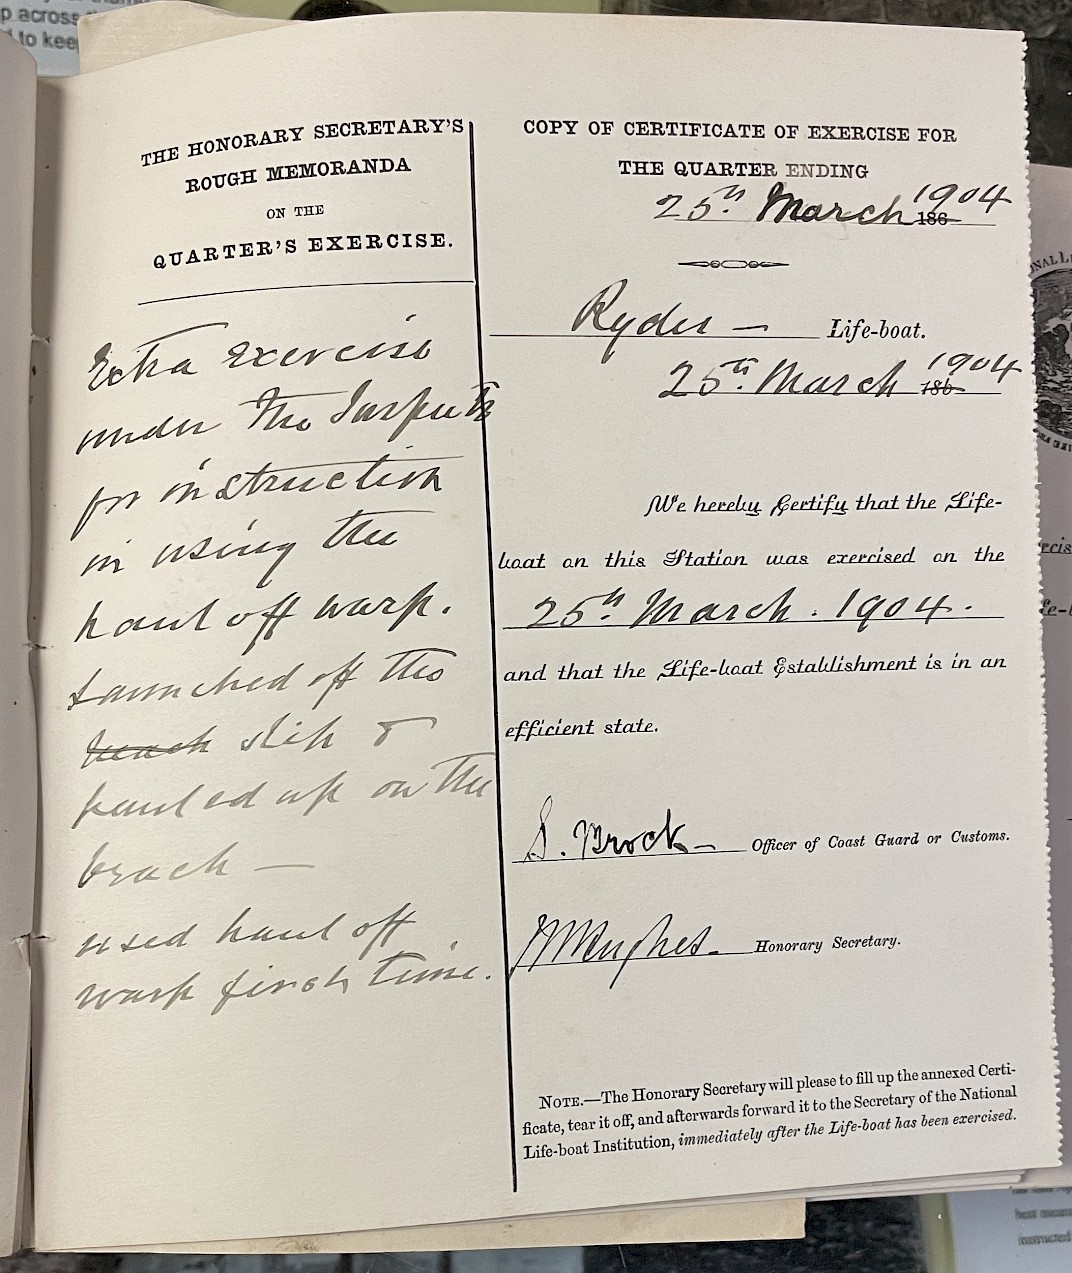 p across
to kee
THE HONORARY SECRETARY'S
ROUGH MEMORANDA
ON THE
QUARTER'S EXERCISE.
Extra Exercise
under the Inspector
for instruction
in using the
haul off warp.
Launched off the
beach slip &
hauled up on the
beach —
used haul off
warp first time.
COPY OF CERTIFICATE OF EXERCISE FOR
THE QUARTER ENDING
25th March 1904 186
Ryder — Life-boat.
25th March 1904 186
We hereby Certify that the Life-
boat on this Station was exercised on the
25th March. 1904.
and that the Life-boat Establishment is in an
efficient state.
S. Brock — Officer of Coast Guard or Customs.
Hughes — Honorary Secretary.
NOTE.—The Honorary Secretary will please to fill up the annexed Certi-
ficate, tear it off, and afterwards forward it to the Secretary of the National
Life-boat Institution, immediately after the Life-boat has been exercised.